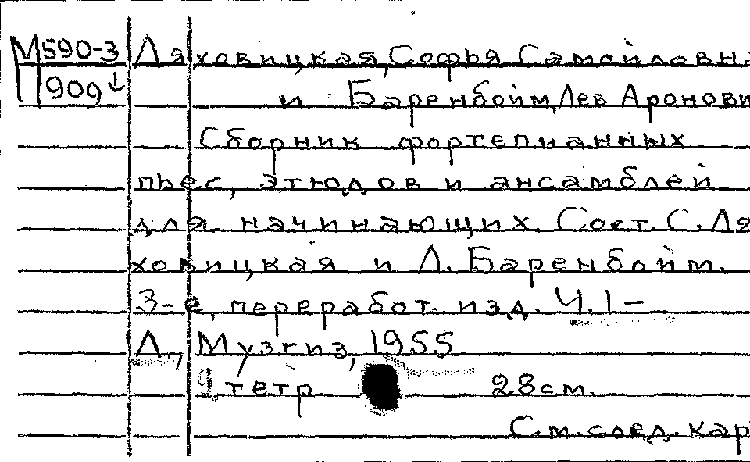 М590-3 Ляховицкая, Софья Самойловна
909↓ и Баренбойм, Лев Аронови
Сборник фортепианных
пьес, этюдов и ансамблей
для начинающих. Сост. С. Ля-
ховицкая и Л. Баренбойм.
3-е, переработ. изд. Ч.1-
Л., Музгиз, 1955
тетр 28 см.
См. след. кар